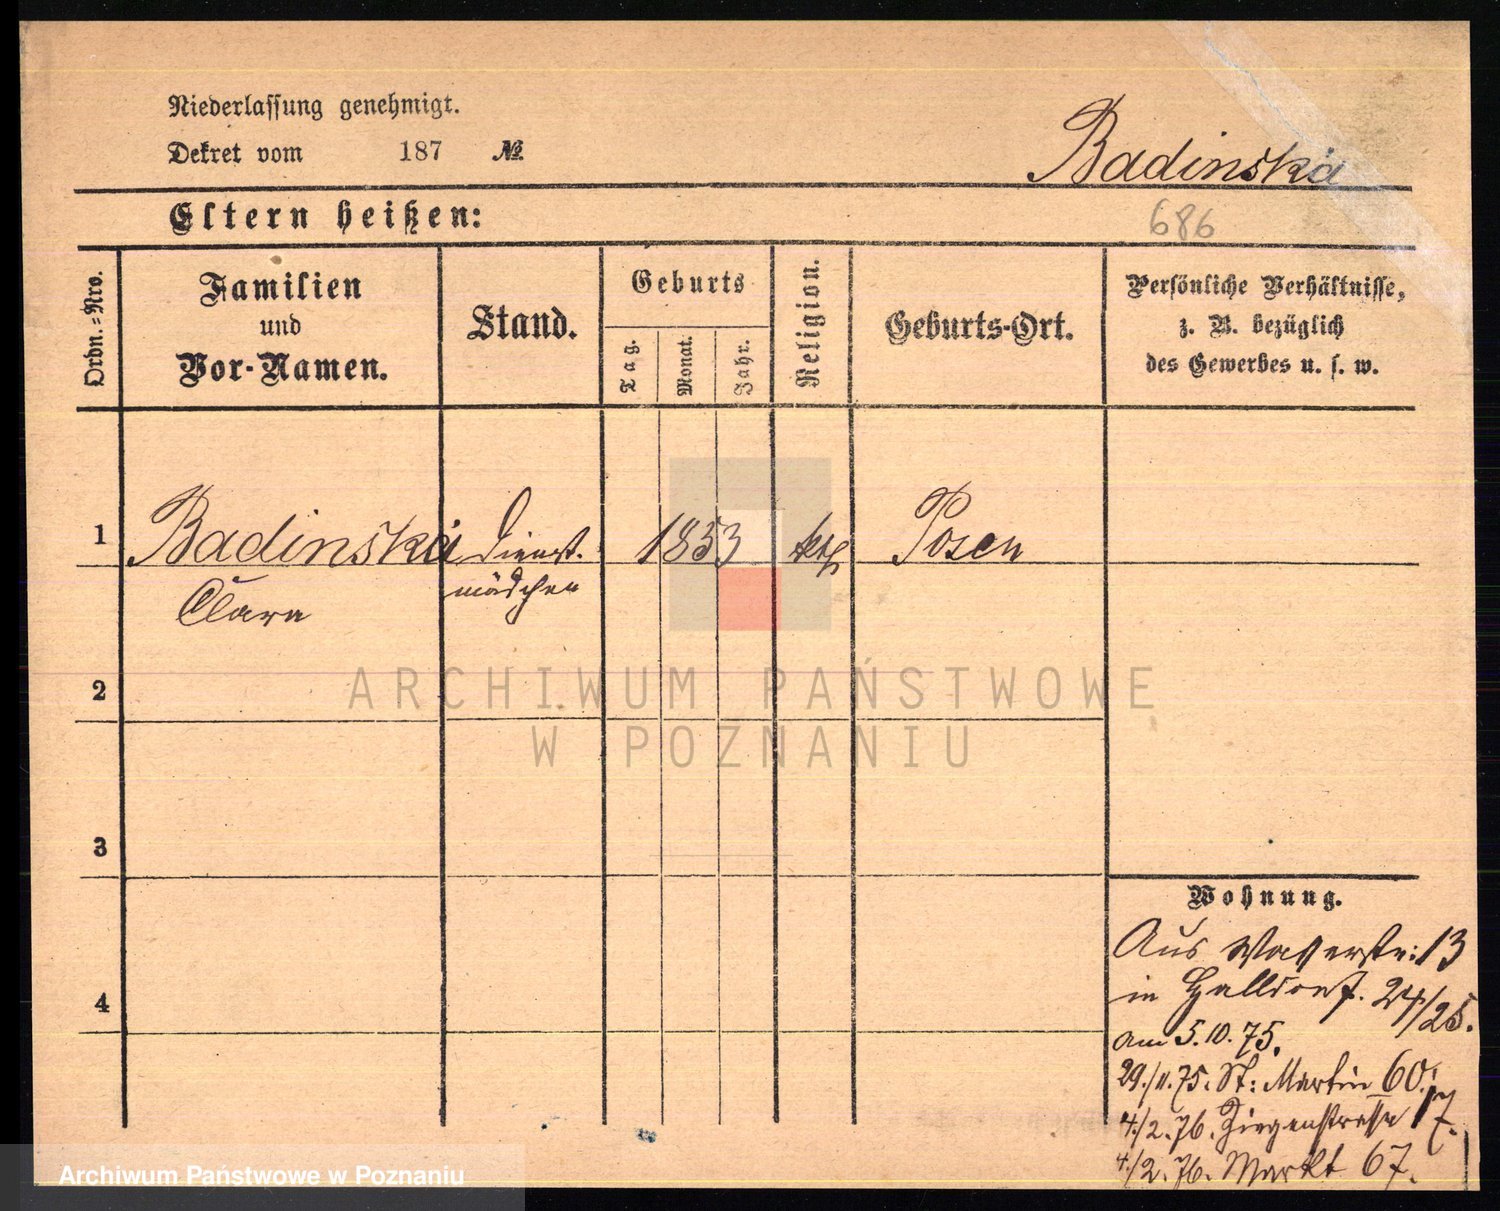 Niederlassung genehmigt.
Dekret vom 187 №
Badinska
Eltern heißen:
686
Ordn.=Nro.
Familien
und
Vor-Namen.
Stand.
Geburts
Tag.
Monat.
Jahr.
Religion.
Geburts-Ort.
Persönliche Verhältnisse,
z. B. bezüglich
des Gewerbes u. s. w.
1
Badinska
Clara
Dienst-
mädchen
1853
kath
Posen
2
3
4
ARCHIWUM PAŃSTWOWE
W POZNANIU
Wohnung.
Aus Wasserstr: 13
in Halldorf. 24/25.
am 5.10.75.
29./11.75. St: Martin 60.
4./2.76. Ziegenstrasse 17.
4./2.76. Markt 67.
Archiwum Państwowe w Poznaniu